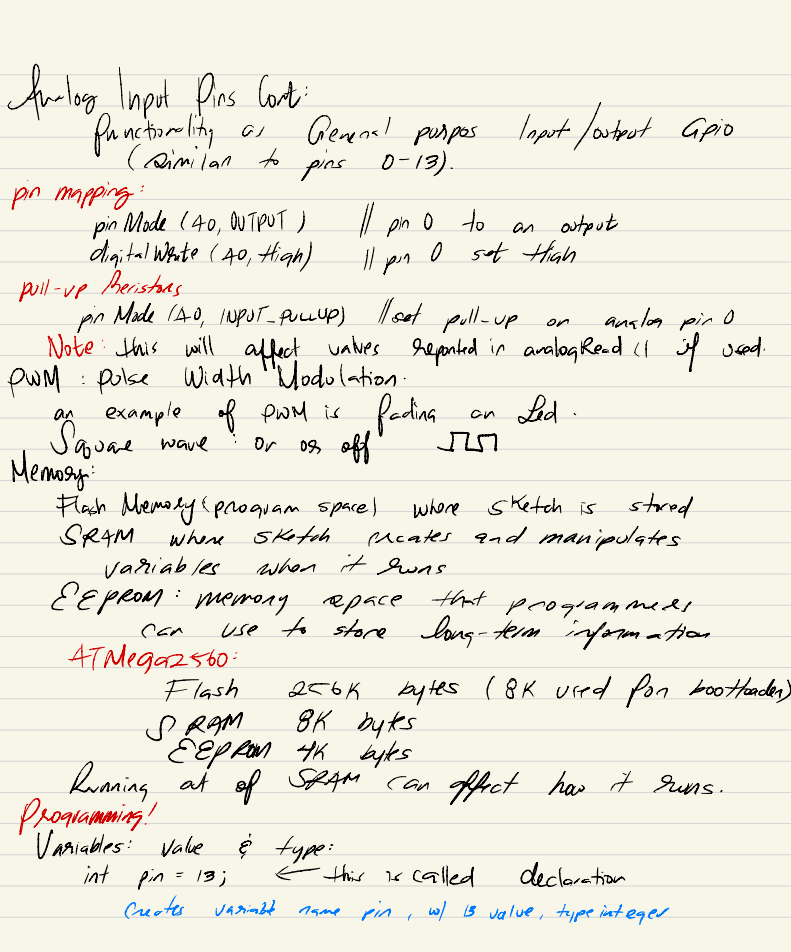 Analog Input Pins Cont:
Functionality as General purpos Input/output Gpio
(similar to pins 0-13).
pin mapping:
pinMode (A0, OUTPUT) // pin 0 to an output
digitalWrite (A0, High) // pin 0 set High
pull-up Resistors
pinMode (A0, INPUT_PULLUP) // set pull-up on analog pin 0
Note: this will affect values reported in analogRead () if used.
PWM: Pulse Width Modulation.
an example of PWM is fading an Led.
Square wave: or off
Memory:
Flash Memory (program space) where sketch is stored
SRAM where sketch creates and manipulates
variables when it runs
EEPROM: memory space that programmers
can use to store long-term information
ATMega2560:
Flash 256K bytes (8K used for bootloader)
SRAM 8K bytes
EEPROM 4K bytes
Running out of SRAM can affect how it runs.
Programming!
Variables: value & type:
int pin = 13; ← this is called declaration
Creates variable name pin, w/ 13 value, type integer